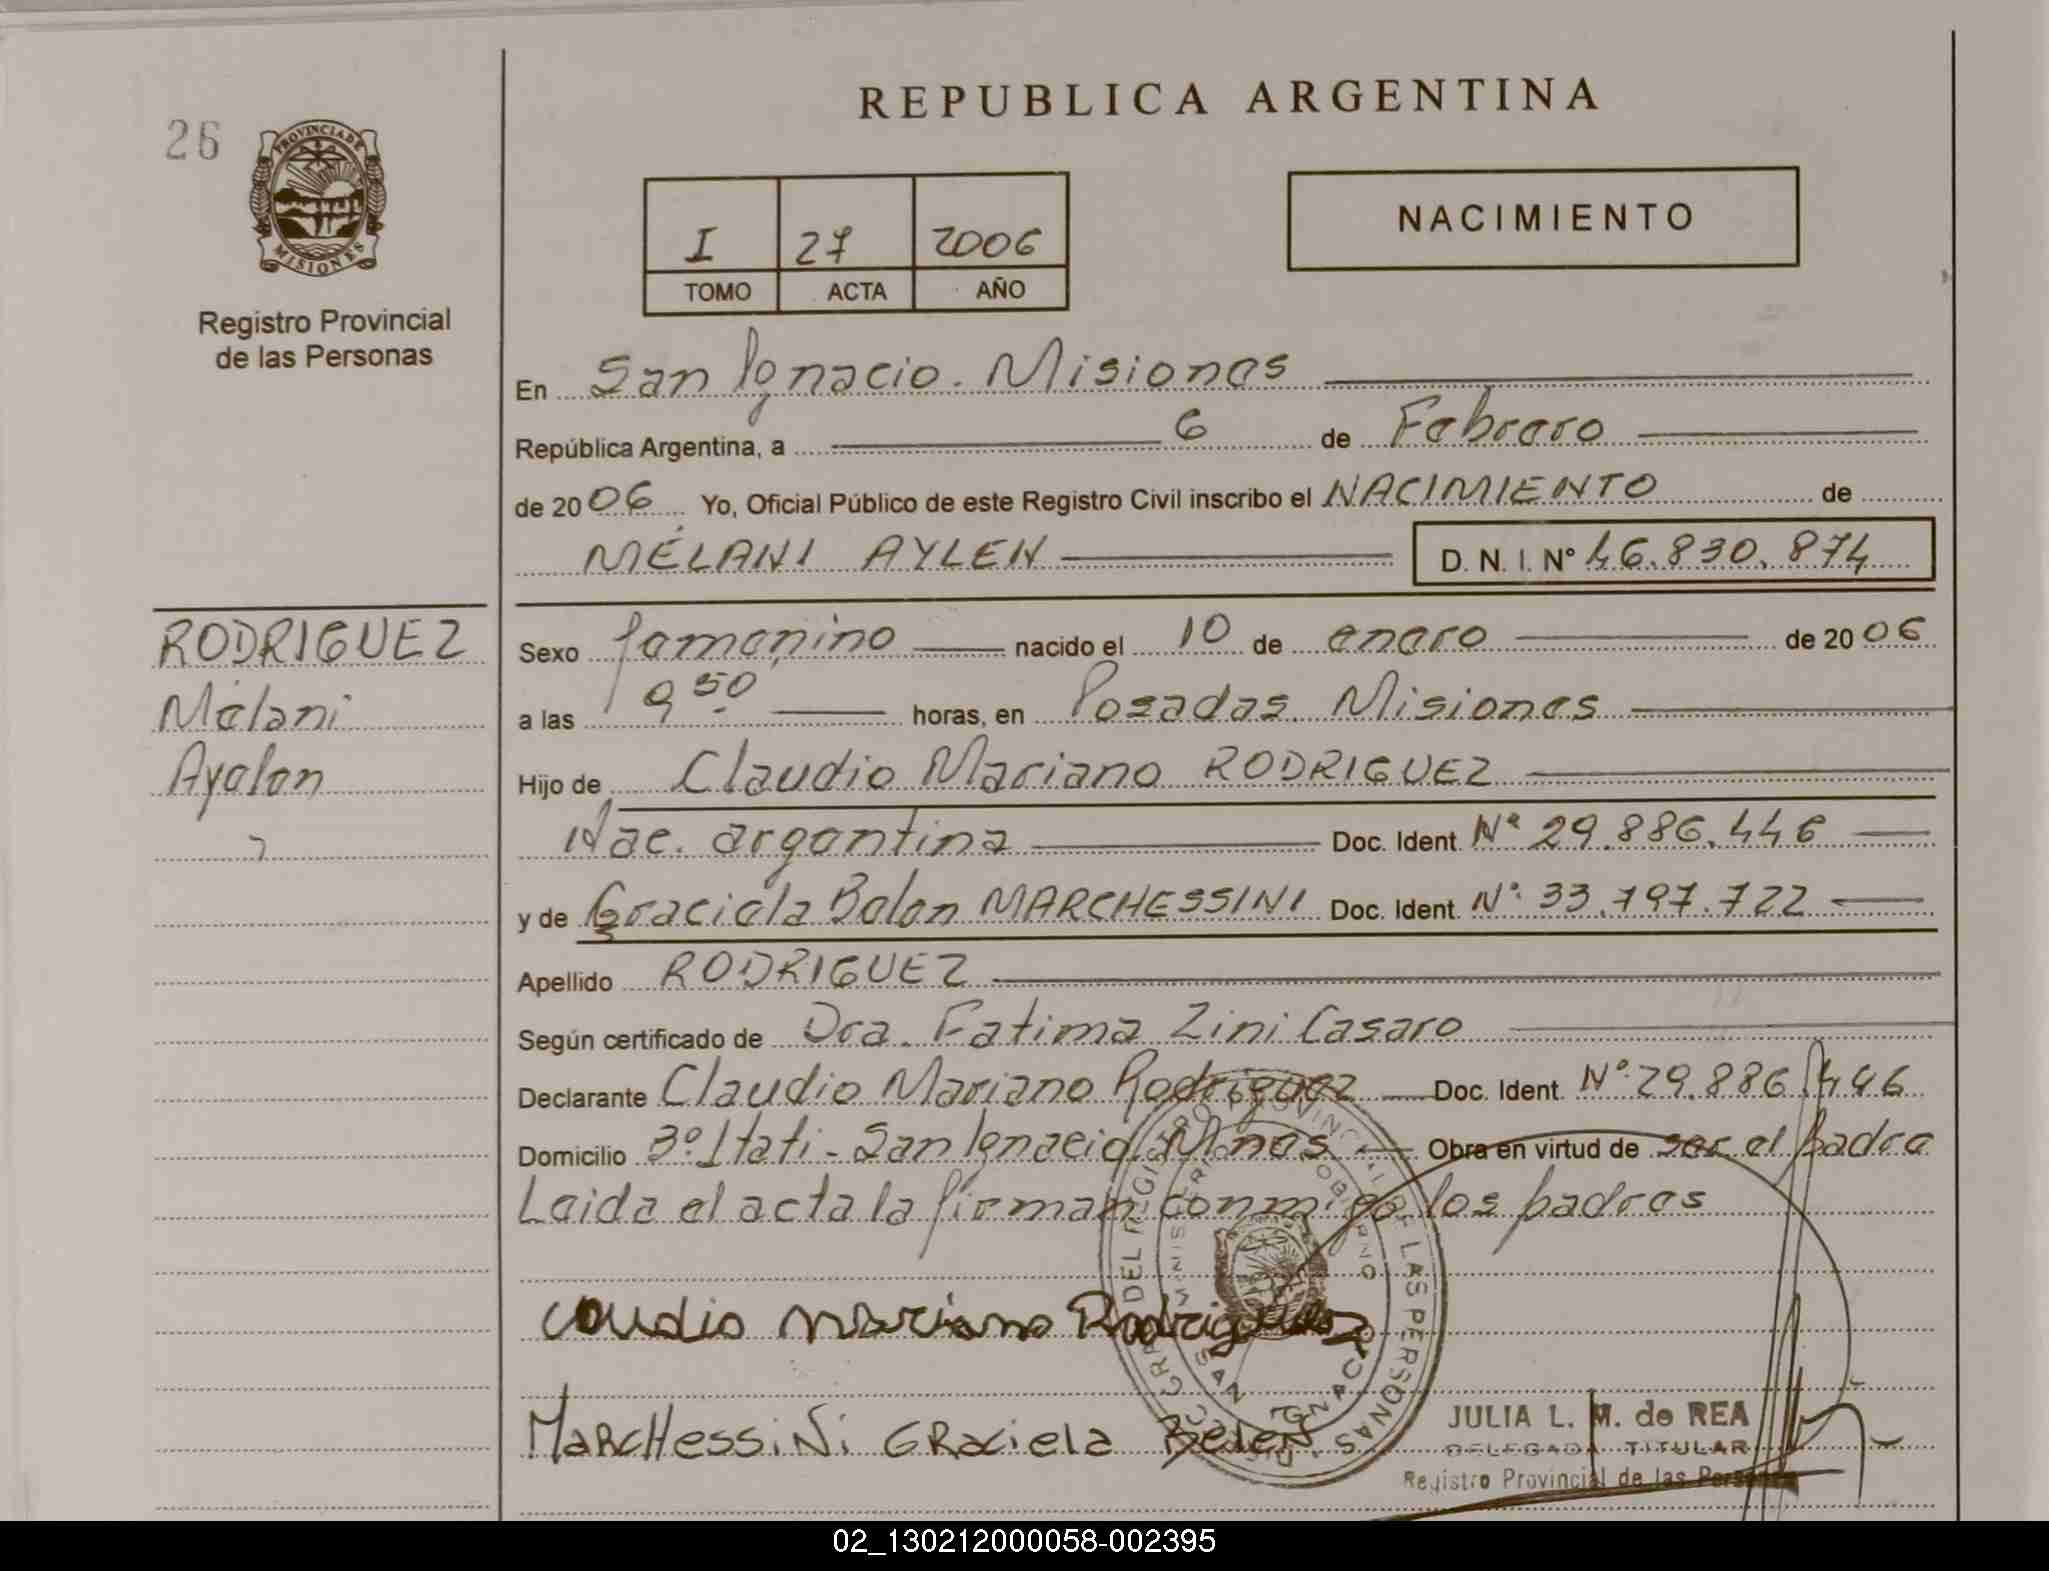 REPUBLICA ARGENTINA
26
PROVINCIA DE
MISIONES
Registro Provincial
de las Personas
I 27 2006
TOMO ACTA AÑO
NACIMIENTO
En San Ignacio. Misiones
República Argentina, a 6 de Febrero
de 2006 Yo, Oficial Público de este Registro Civil inscribo el NACIMIENTO de
MÉLANI AYLEN D. N. I. N° 46.830.874
RODRIGUEZ
Mélani
Ayelen
Sexo femenino nacido el 10 de enero de 2006
a las 9 50 horas, en Posadas. Misiones
Hijo de Claudio Mariano RODRIGUEZ
Nac. argentina Doc. Ident. N° 29.886.446
y de Graciela Belen MARCHESSINI Doc. Ident. N° 33.797.722
Apellido RODRIGUEZ
Según certificado de Dra. Fatima Zini Casaro
Declarante Claudio Mariano Rodriguez Doc. Ident. N° 29.886.446
Domicilio 3° Itati - San Ignacio Mnes Obra en virtud de ser el padre
Leida el acta la firman conmigo los padres
Claudio Mariano Rodriguez
MARCHESSiNi GRaciela BeleN
REGISTRO PROVINCIAL DE LAS PERSONAS
MINISTERIO GOBIERNO
SAN IGNACIO
JULIA L. M. de REA
DELEGADA TITULAR
Registro Provincial de las Personas
02_130212000058-002395